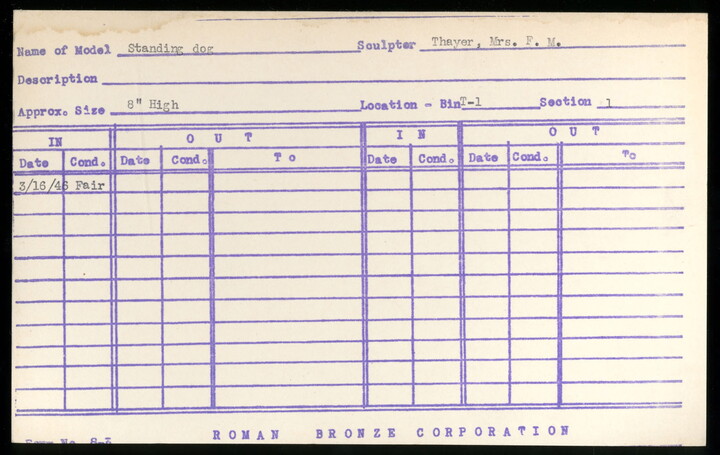 Name of Model Standing dog Sculpter Thayer, Mrs. F. M.
Description
Approx. Size 8" High Location - Bin T-1 Section 1
IN OUT IN OUT
Date Cond. Date Cond. TO Date Cond. Date Cond. To
3/16/46 Fair
No. S-3
ROMAN BRONZE CORPORATION